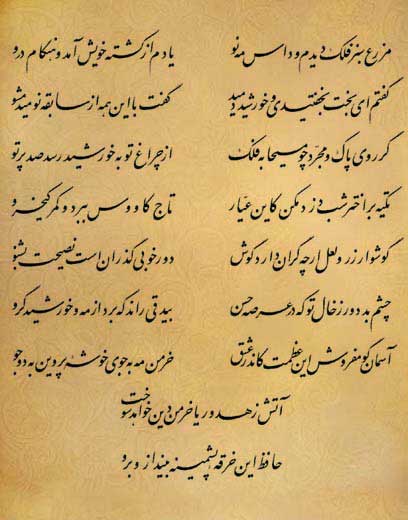 مزرع سبز فلک دیدم و داس مه نو یادم از کشته خویش آمد و هنگام درو
گفتم ای بخت بخفتیدی و خورشید دمید گفت با این همه از سابقه نومید مشو
گر روی پاک و مجرد چو مسیحا به فلک از چراغ تو به خورشید رسد صد پرتو
تکیه بر اختر شب دزد مکن کاین عیار تاج کاووس ببرد و کمر کیخسرو
گوشوار زر و لعل ارچه گران دارد گوش دور خوبی گذران است نصیحت بشنو
چشم بد دور ز خال تو که در عرصه حسن بیدقی راند که برد از مه و خورشید گرو
آسمان گو مفروش این عظمت کاندر عشق خرمن مه به جوی خوشه پروین به دو جو
آتش زهد و ریا خرمن دین خواهد سوخت
حافظ این خرقه پشمینه بینداز و برو